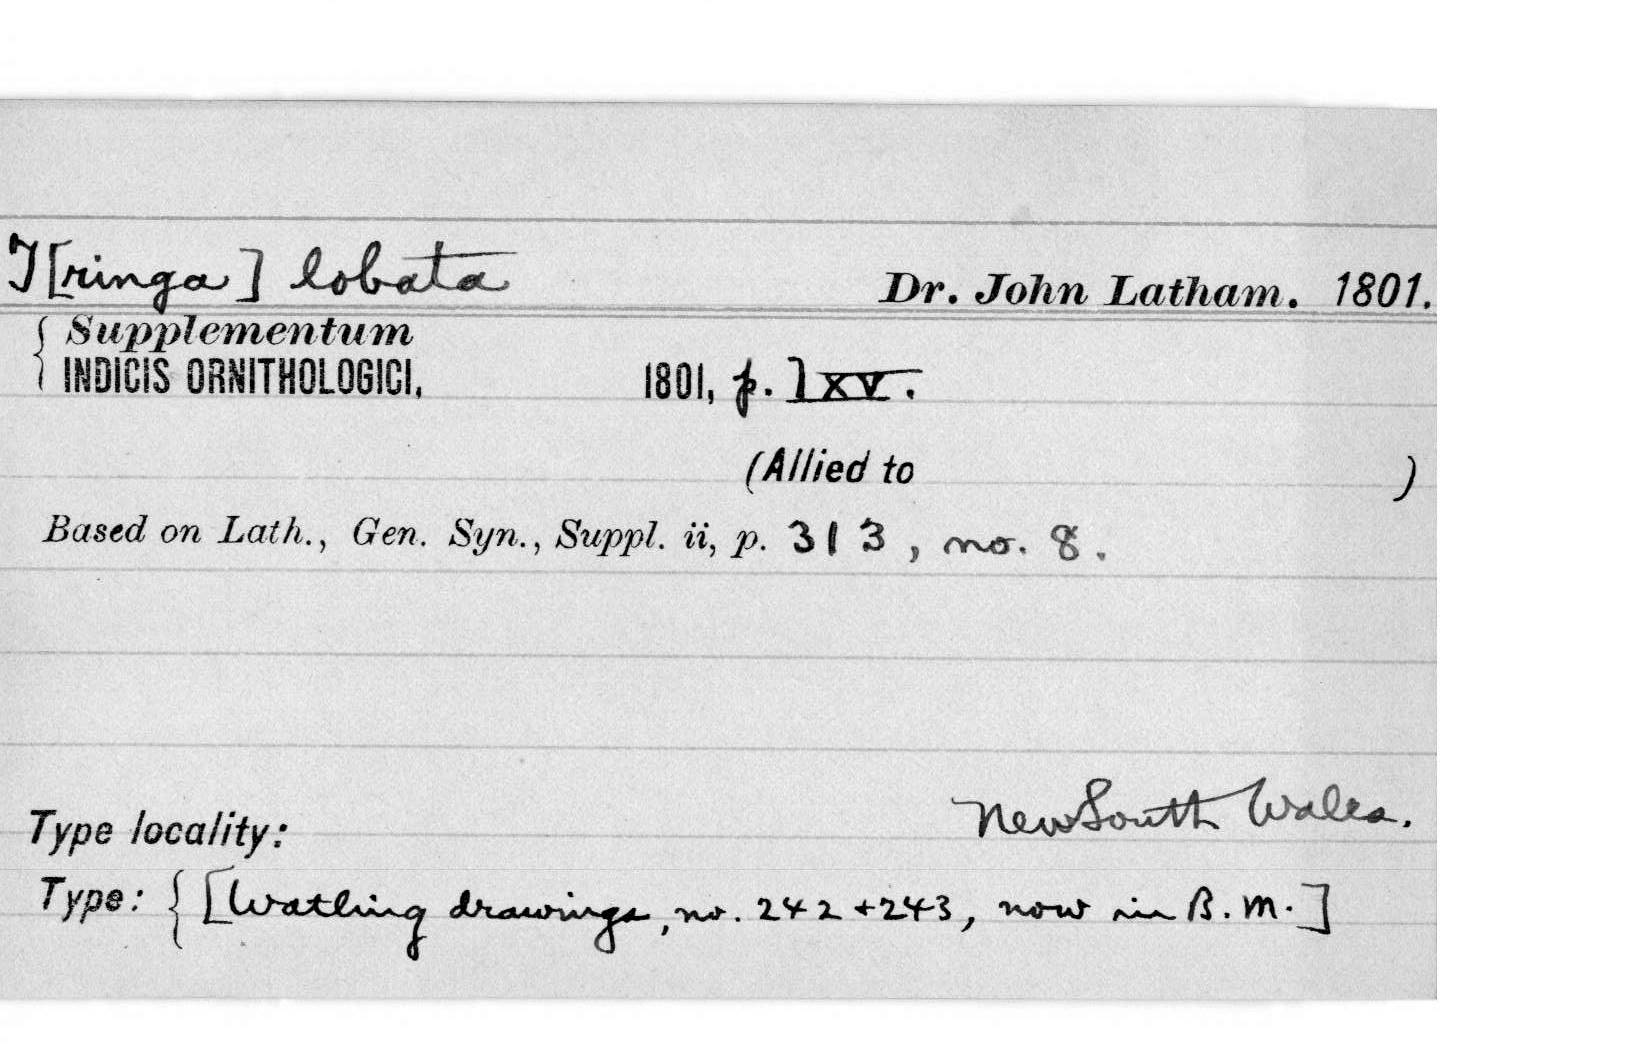 T[ringa] lobata Dr. John Latham. 1801.
{ Supplementum
INDICIS ORNITHOLOGICI, 1801, p. lxv.
(Allied to )
Based on Lath., Gen. Syn., Suppl. ii, p. 313, no. 8.
New South Wales.
Type locality:
Type: { [Watling drawings, no. 242 + 243, now in B. M.]